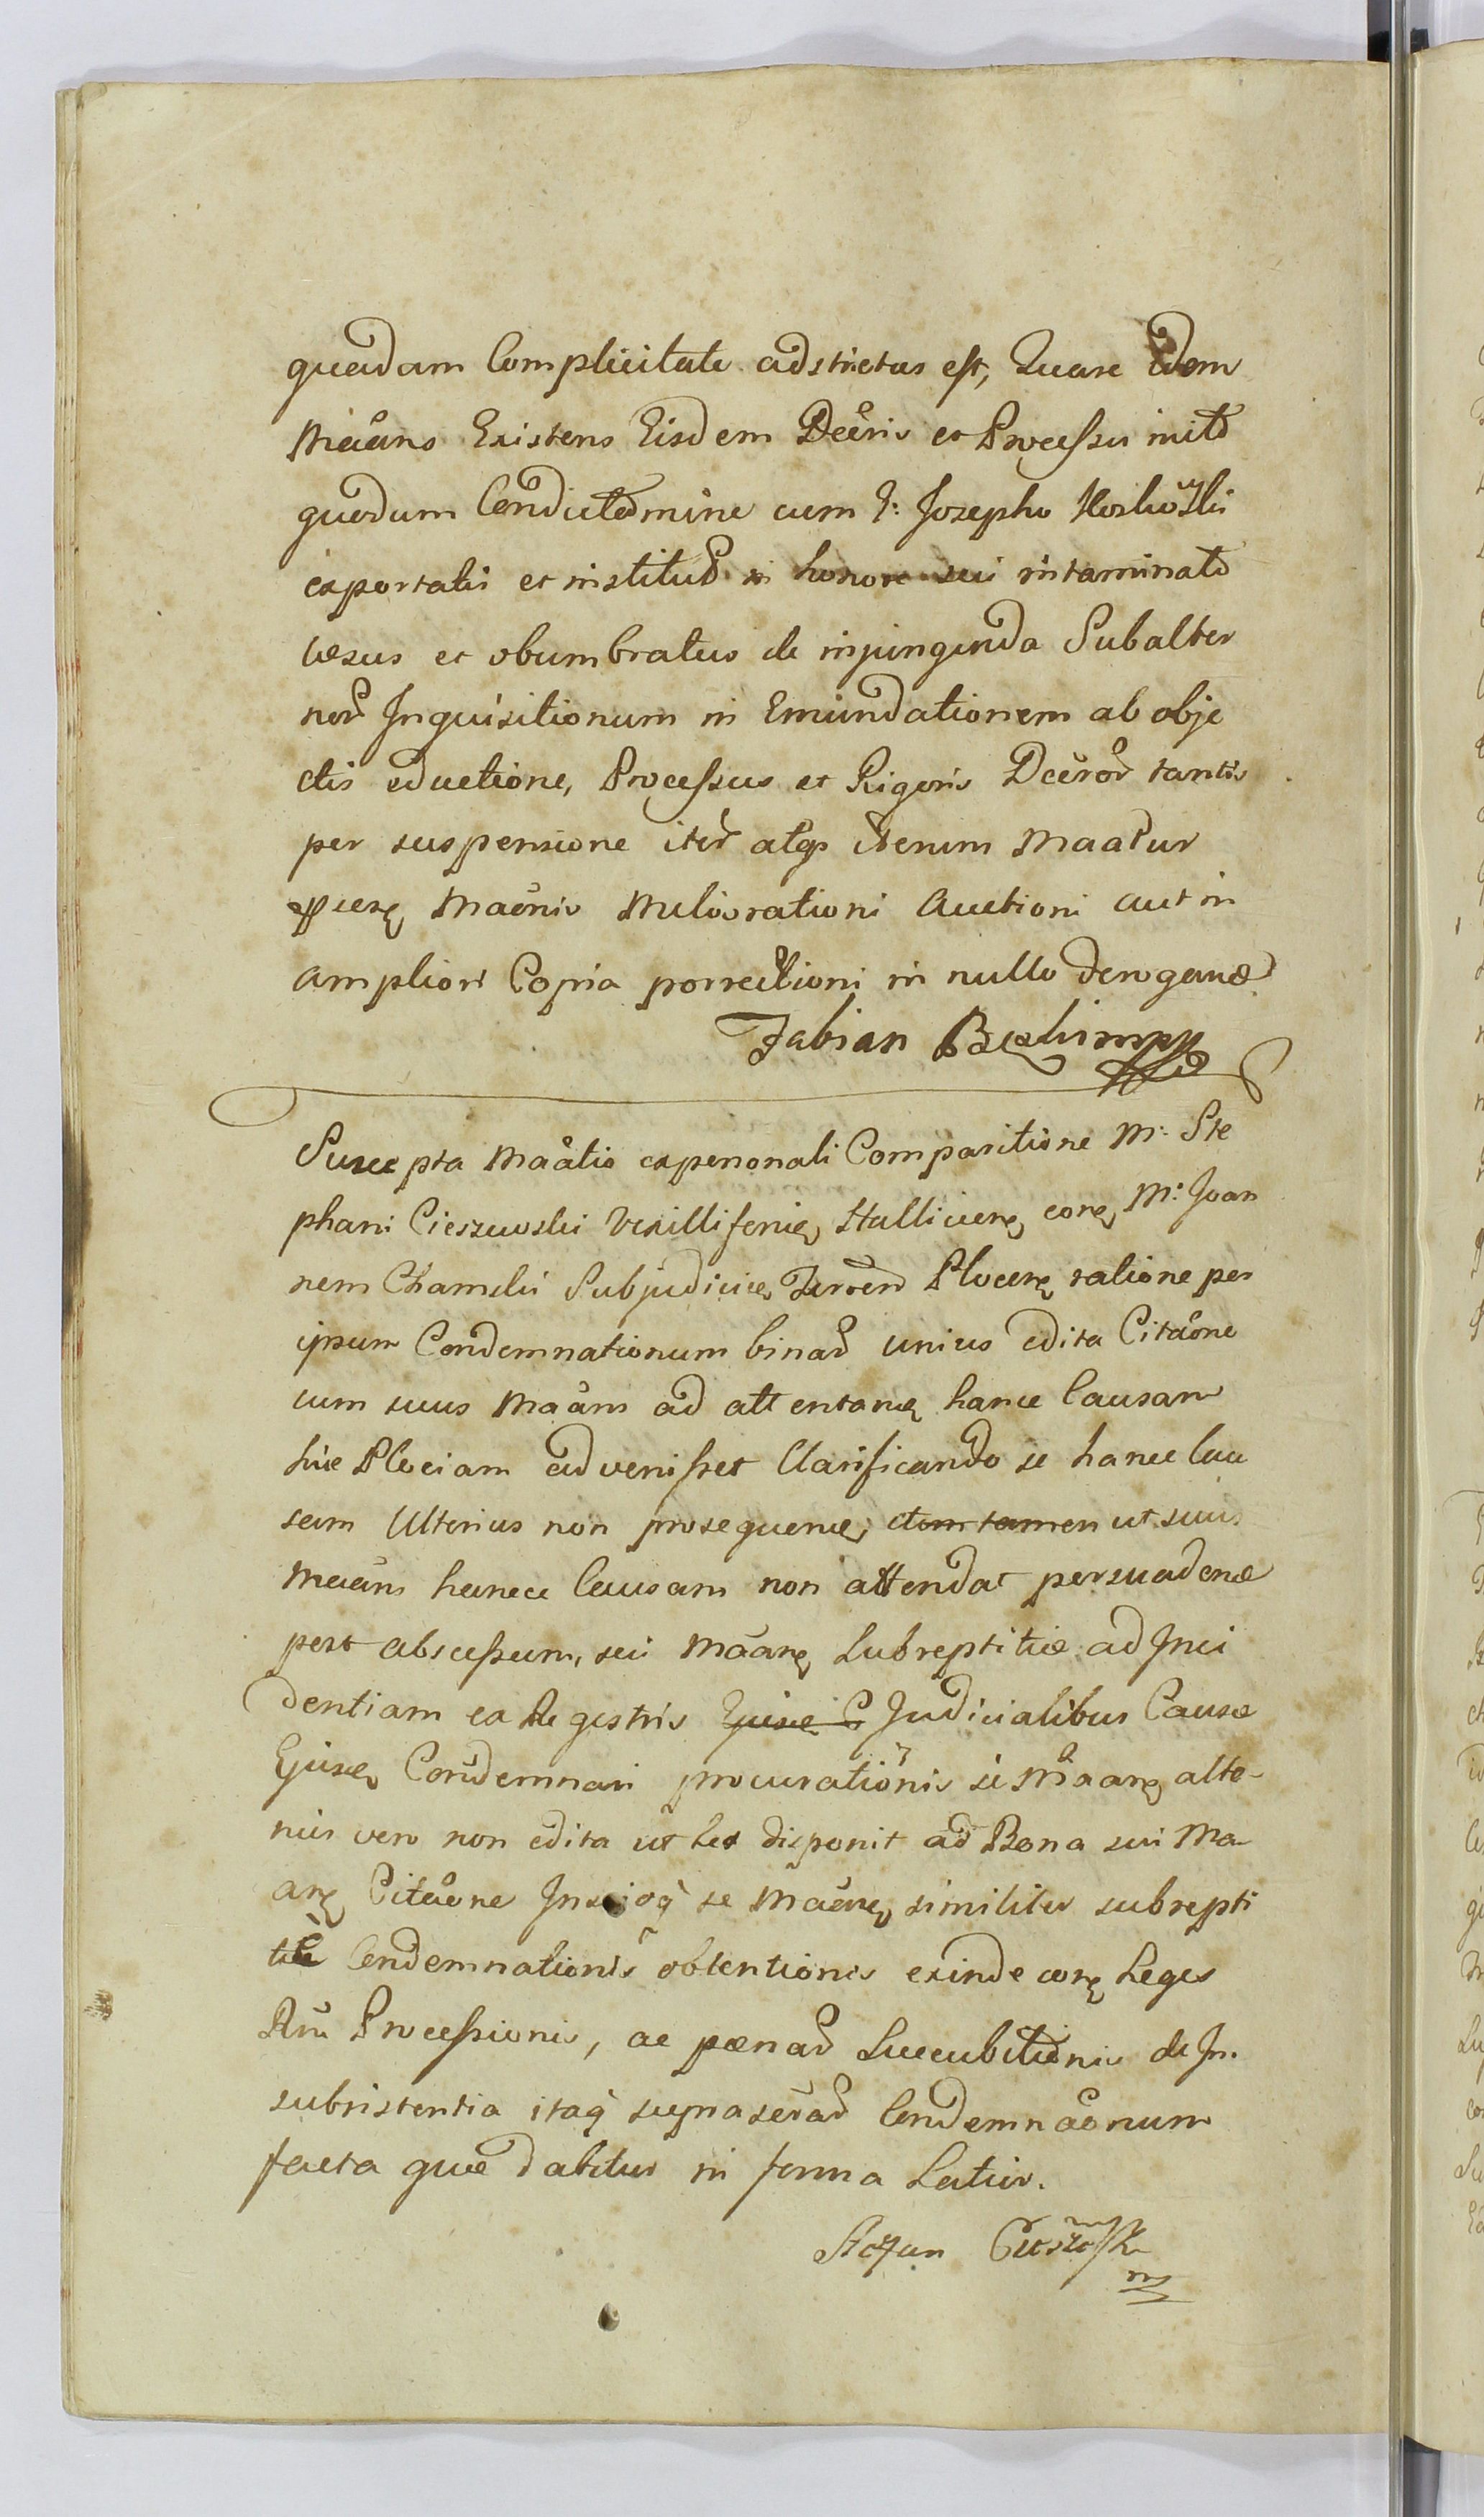 quadam Complicitate adstrictus est, Quare idem
Maãns Existens Eisdem Decris et Processu init
quodum Condictamine cum G: Josepho
exportatis et institut in honore sui intaminato
læsus et obumbratus de injungenda Subalter
nor Inquisitionum in Emundationem ab obje
ctis eductione, Processus et Rigoris Decror tantis
per suspensione iter atq iterum Maatur
Maãnis Meliorationi Auctioni aut in
ampliori Copia porrectioni in nullo derogan
Fabian
Suscepta Maãtio expersonali Comparitione M: Ste
phani Cieszewski Vexilliferi contra M: Joan
nem Chamski Subjudice Terren Plocen ratione per
ipsum Condemnationum binar unius edita Citaõne
cum suus Maãns ad attentan hance Causam
huc Plociam advenisset Clarificando se hance Cau
sam Ulterius non prosequen ut suus
Maãns hance Causam non attendat persuaden
post abscessum sui Maãn Subreptitie ad Inci
dentiam ex Regestris Judicialibus Causæ
Ejusq Condemnari procurationis si Maan alte-
rius vero non edita ut Lex disponit ad Bona sui Ma
an Citaõne Inscioq se Maãn similiter subrepti
tiæ Condemnationis obtentionis exinde con Leges
Rni Processionis, ac pænar Succubitionis de In
subsistentia itaq suprascrar Condemnaõnum
facta quæ dabitur in forma Latior.
Stefan Cieszewski
mp